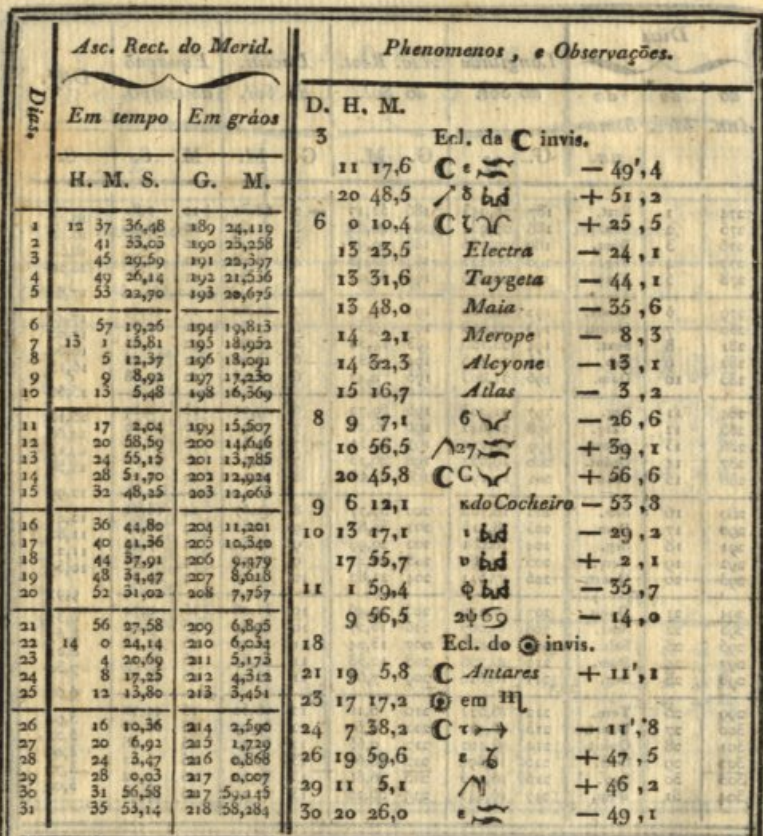 Asc. Rect. do Merid.
Dias.
Em tempo Em gráos
H. M. S. G. M.
1 12 37 36,48 189 24,119
2 41 33,03 190 23,258
3 45 29,59 191 22,397
4 49 26,14 192 21,536
5 53 22,70 193 20,675
6 57 19,26 194 19,813
7 13 1 15,81 195 18,952
8 5 12,37 196 18,091
9 9 8,92 197 17,230
10 13 5,48 198 16,369
11 17 2,04 199 15,507
12 20 58,59 200 14,646
13 24 55,15 201 13,785
14 28 51,70 202 12,924
15 32 48,25 203 12,063
16 36 44,80 204 11,201
17 40 41,36 205 10,340
18 44 37,91 206 9,479
19 48 34,47 207 8,618
20 52 31,02 208 7,757
21 56 27,58 209 6,895
22 14 0 24,14 210 6,034
23 4 20,69 211 5,173
24 8 17,25 212 4,312
25 12 13,80 213 3,451
26 16 10,36 214 2,590
27 20 6,92 215 1,729
28 24 3,47 216 0,868
29 28 0,03 217 0,007
30 31 56,58 217 59,145
31 35 53,14 218 58,284
Phenomenos, e Observações.
D. H. M.
3 Ecl. da ☾ invis.
11 17,6 ☾ ε ♒ — 49',4
20 48,5 δ + 51,2
6 0 10,4 ☾ ζ ♈ + 25,5
13 23,5 Electra — 24,1
13 31,6 Taygeta — 44,1
13 48,0 Maia — 35,6
14 2,1 Merope — 8,3
14 32,3 Alcyone — 13,1
15 16,7 Atlas — 3,2
8 9 7,1 6 ♉ — 26,6
10 56,5 27, ♒ + 39,1
20 45,8 ☾ C ♉ + 56,6
9 6 12,1 κ do Cocheiro — 53,8
10 13 17,1 ι — 29,2
17 55,7 υ + 2,1
11 1 59,4 φ — 35,7
9 56,5 2ψ ♋ — 14,0
18 Ecl. do ☉ invis.
21 19 5,8 ☾ Antares + 11',1
23 17 17,2 ☉ em ♏
24 7 38,2 ☾ τ ♐ — 11',8
26 19 59,6 ε ♑ + 47,5
29 11 5,1 + 46,2
30 20 26,0 ε ♒ — 49,1